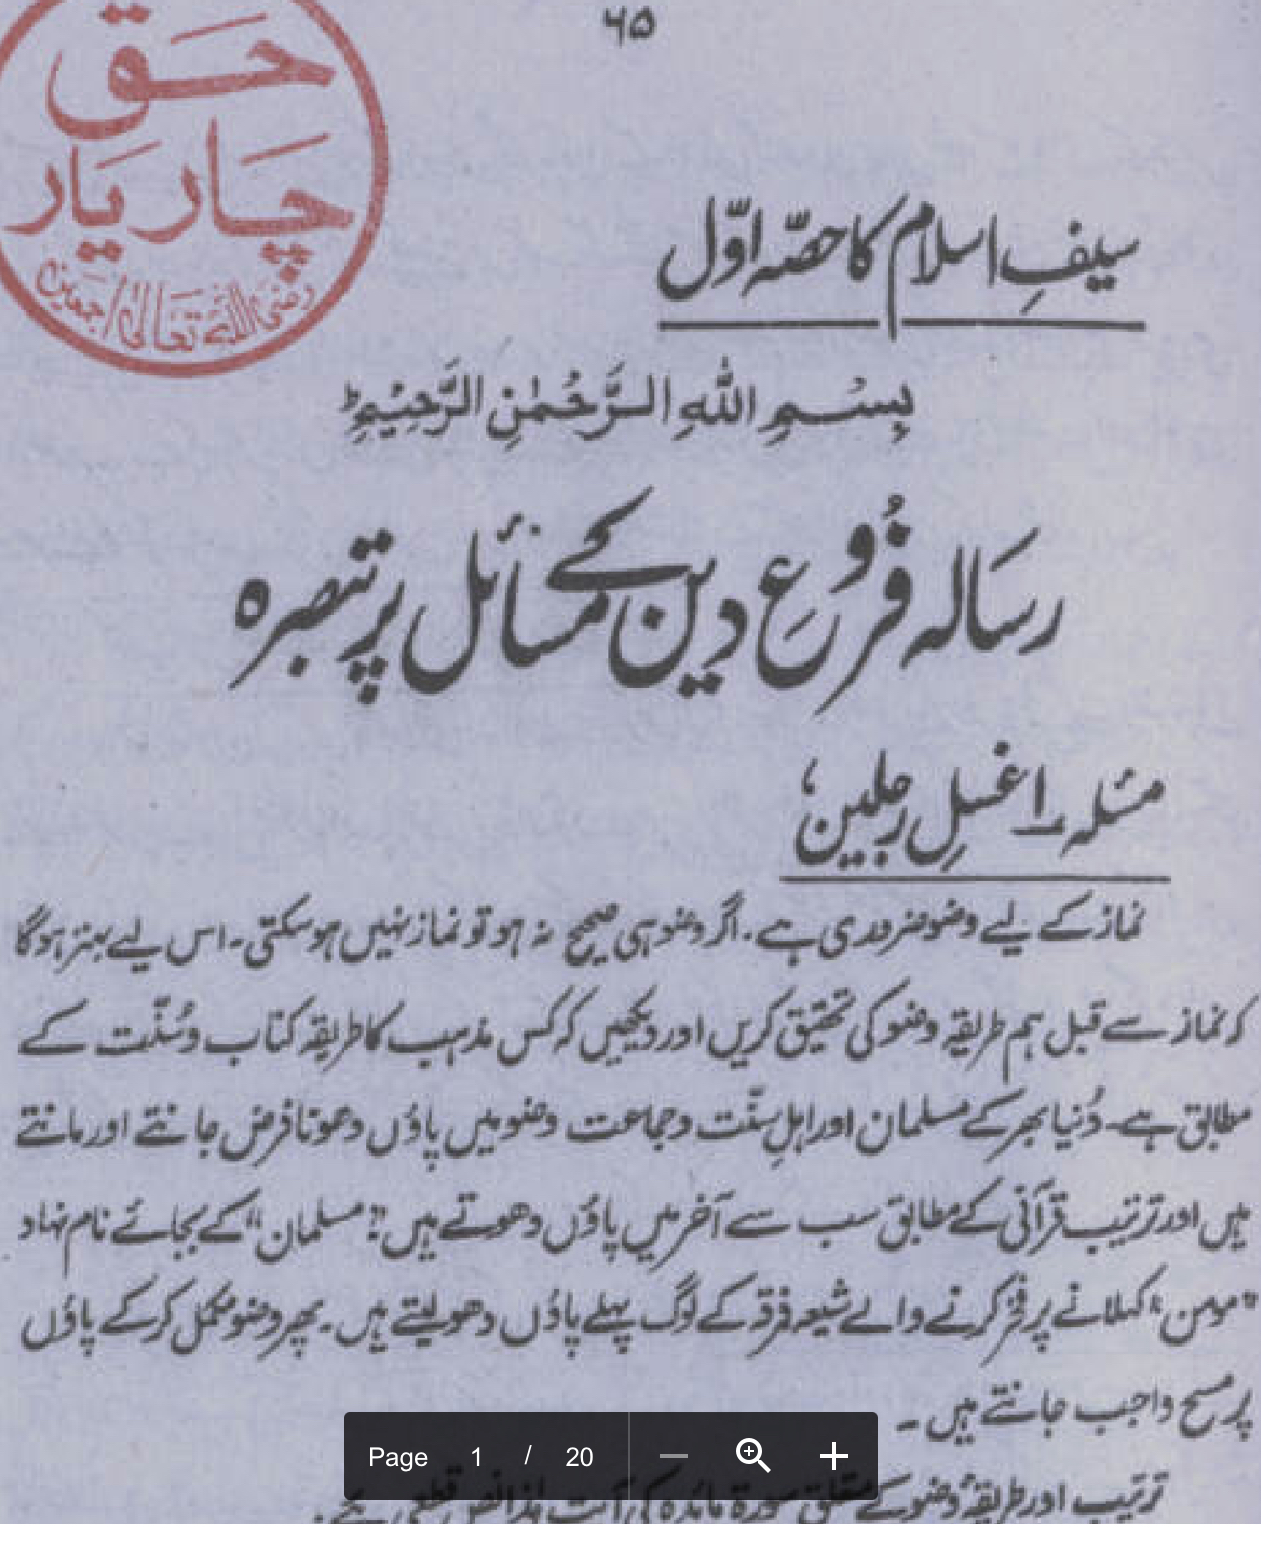 ۶۵
حق
چار یار
رضی اللہ تعالیٰ اجمعین
سیفِ اسلام کا حصّہ اوّل
بِسْمِ اللہِ الرَّحْمٰنِ الرَّحِیْمِ ط
رسَالہ فُروعِ دین کے مسَائل پر تبصرہ
مسٔلہ ۱ غسلِ رجلین؛
نماز کے لیے وضو ضروری ہے۔ اگر وضو ہی صحیح نہ ہو تو نماز نہیں ہو سکتی۔ اس لیے بہتر ہوگا
کہ نماز سے قبل ہم طریقۂ وضو کی تحقیق کریں اور دیکھیں کہ کس مذہب کا طریقہ کتاب و سُنّت کے
مطابق ہے۔ دُنیا بھر کے مسلمان اور اہلِ سنّت و جماعت وضو میں پاؤں دھونا فرض جانتے اور مانتے
ہیں اور ترتیب قرآنی کے مطابق سب سے آخر میں پاؤں دھوتے ہیں؛ "مسلمان" کے بجائے نام نہاد
"مومن" کہلانے پر فخر کرنے والے شیعہ فرقہ کے لوگ پہلے پاؤں دھو لیتے ہیں۔ پھر وضو مکمل کر کے پاؤں
پر مسح واجب جانتے ہیں۔
Page 1 / 20
ترتیب اور طریقۂ وضو کے متعلق سورۃ مائدہ کی آیت ہٰذا نص قطعی ہے: